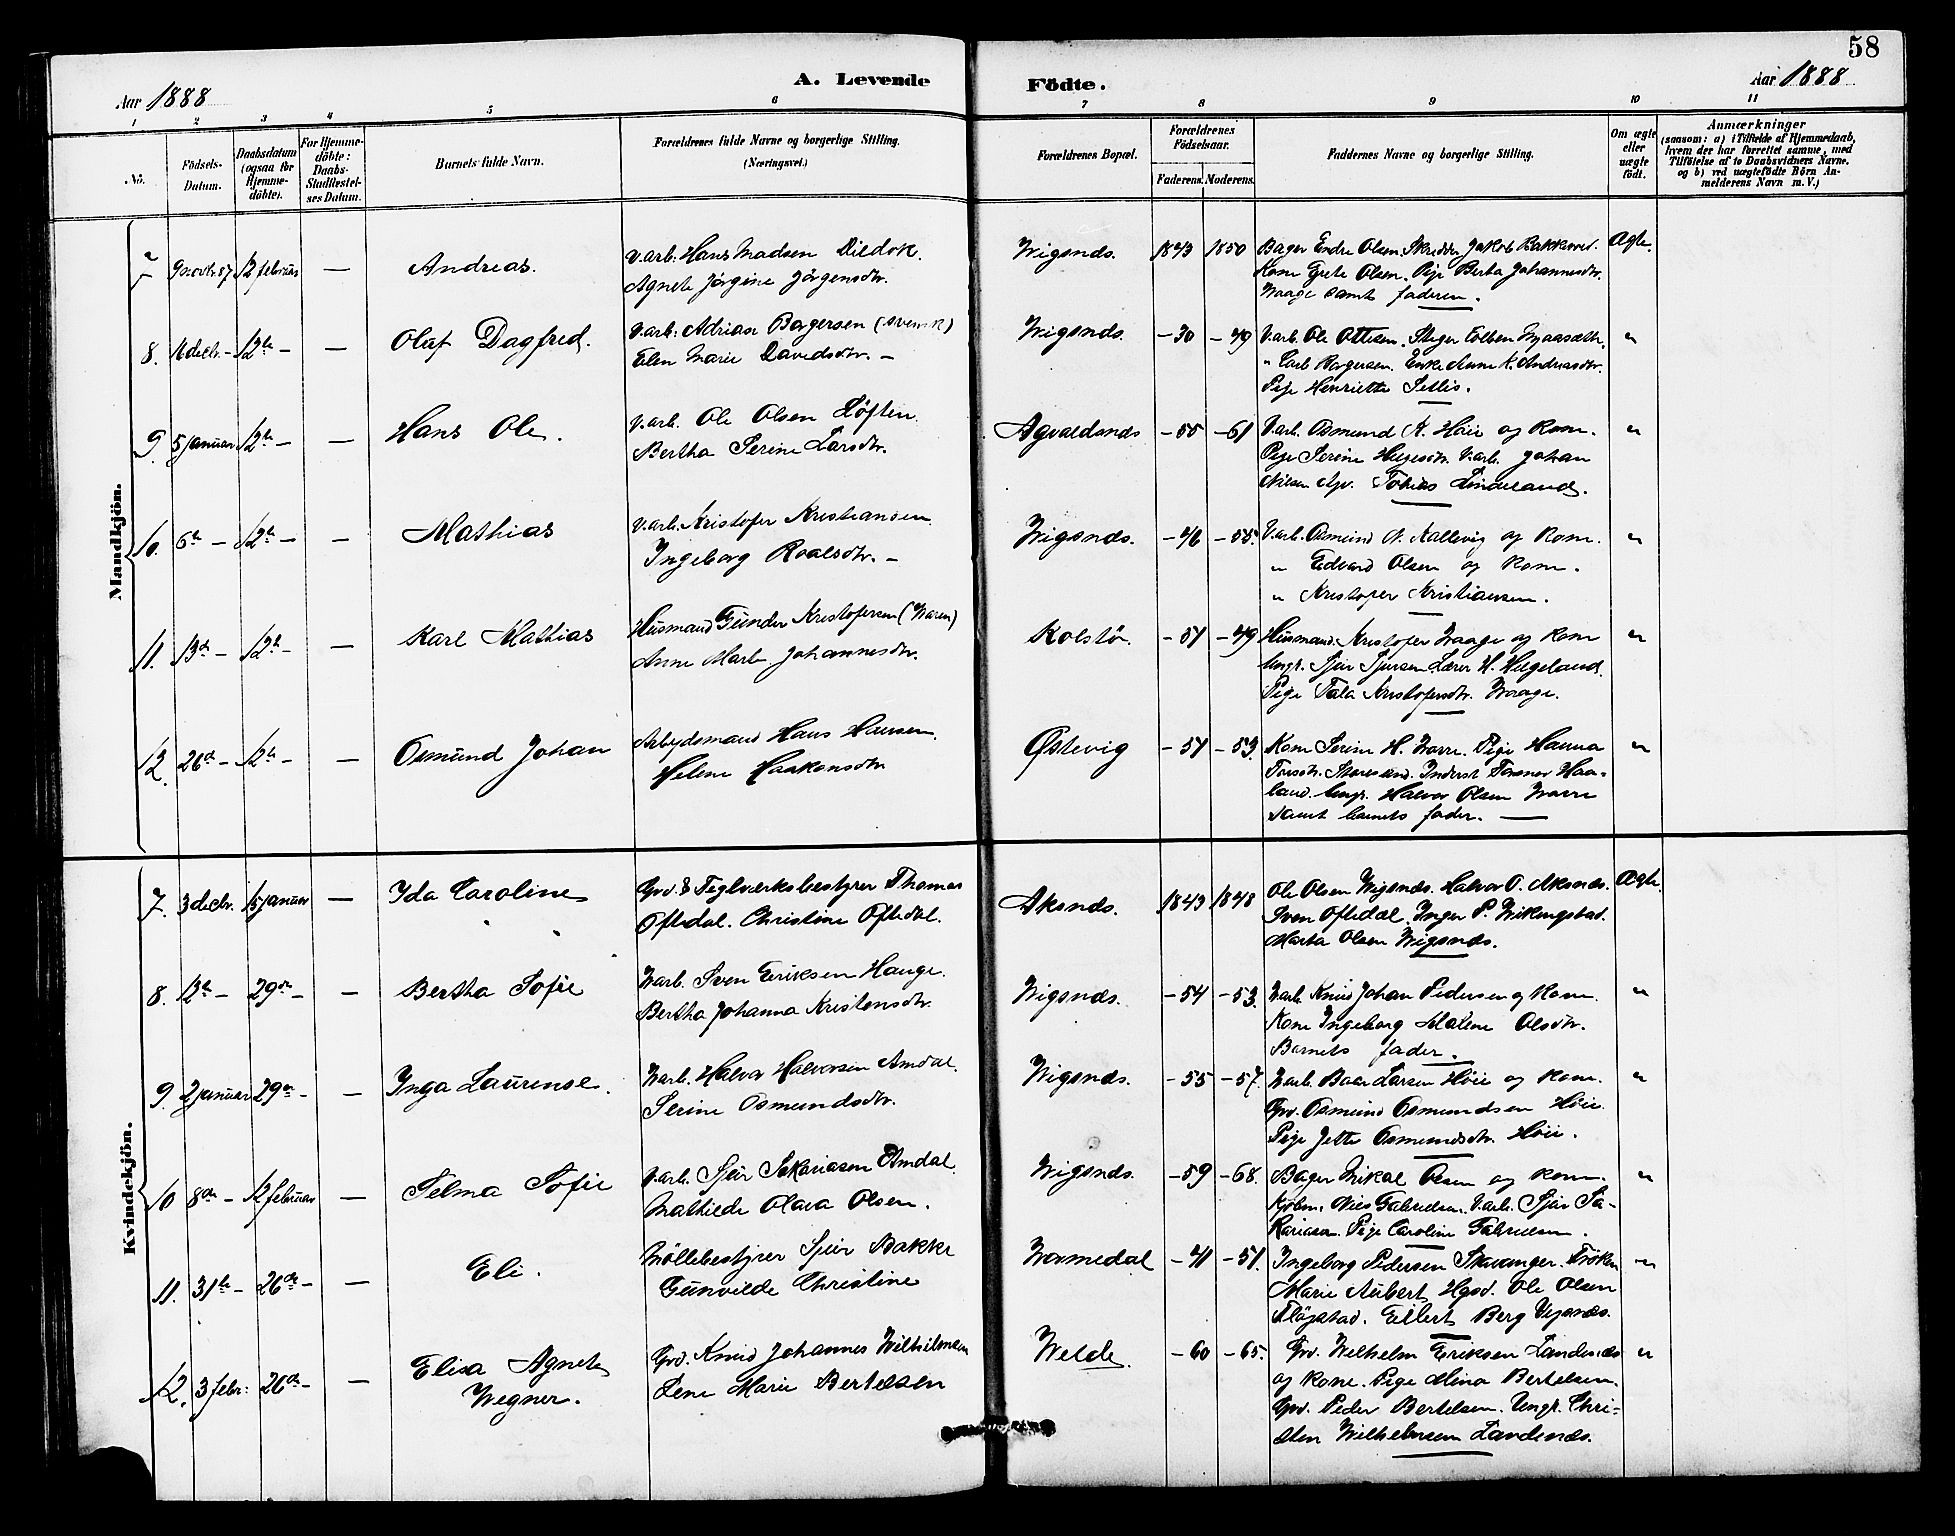 58
Aar 1888
A. Levende
Födte.
Aar 1888
1 2 3 4 5 6 7 8 9 10 11
No.
Födsels-
Datum.
Daabsdatum
(ogsaa för
Hjemme-
döbte).
For Hjemme-
döbte:
Daabs-
Stadfæstel-
ses Datum.
Barnets fulde Navn.
Forældrenes fulde Navne og borgerlige Stilling.
(Næringsvei.)
Forældrenes Bopæl.
Forældrenes
Födselsaar.
Faderens. Moderens.
Faddernes Navne og borgerlige Stilling.
Om ægte
eller
uægte
födt.
Anmærkninger
(saasom: a) i Tilfælde af Hjemmedaab,
hvem der har forrettet samme, med
Tilföielse af to Daabsvidners Navne,
og b) ved uægtefödte Börn An-
melderens Navn m. V.)
Mandkjön.
7 9 novbr. 87 12 februar — Andreas. V.arb. Hans Madsen Dildok.
Agnete Jörgine Jörgensdtr.
Wigsnds. 1843 1850 Bager Endre Olsen. Skredder Jakob Bakkeved. Ægte.
Kone Grete Olsen. Pige Berta Johannesdtr.
Waage samt faderen.
8. 16 decbr. — 12te — — Olaf Dagfred. V.arb. Adrian Borgersen (svensk)
Elen Marie Davidsdtr. —
Wigsnds. — 30 — 49 V.arb. Ole Ottesen. Stiger Colben
" Carl Borgersen. Enke Anne K. Andreasdtr.
Pige Henriette Setlis.
9. 5 januar 12te — — Hans Ole. V.arb. Ole Olsen Löften.
Bertha Serine Larsdtr.
Agvaldsnds — 55 — 61 V.arb. Osmund K. Höie og Kone.
Pige Serine Helgesdtr. V.arb. Johan
Nilsen. Tobias Lindeland.
10. 6te — 12te — — Mathias V.arb. Kristofer Kristiansen.
Ingeborg Roalsdtr. —
Wigsnds. — 46 — 55. V.arb. Osmund N. Kallevig og Kone.
" Edvard Olsen og Kone.
" Kristofer Kristiansen.
11. 13de — 12te — — Karl Mathias Husmand Gunder Kristofersen (Waren)
Anne Marte Johannesdtr.
Kolstö. — 51 — 49 Husmand Kristofer Waage og Kone
Ungk. Sjur Sjursen. Lærer H. Helgeland.
Pige Tala Kristofersdtr. Waage.
12. 26de — 12te — — Osmund Johan Arbejdsmand Hans Hansen.
Helene Haakonsdtr
Østevig — 51 — 53. Kone Serine H. Wavre. Pige Hanna
Inderst Haa-
land. Ungk. Halvor Olsen Wavre
samt barnets fader. —
Kvindekjön.
7. 3 decbr. 15 januar — Ida Caroline Grd. & Teglværksbestyrer Thomas
Oftedal. Christine Oftedal.
Aksnds. 1843 1848 Ole Olsen Wigsnds. Halvor O. Aksnds. Ægte.
Sven Oftedal. Inger P. Wikingstad.
Marta Olsen Wigsnds.
8. 12te — 29de — — Bertha Sofie Varb. Sven Eriksen Hauge.
Bertha Johanna Kristensdtr.
Wigsnds. — 54 — 53. Varb. Knud Johan Pedersen og Kone.
Kone Ingeborg Malene Olsdtr.
Barnets fader.
9. 2 januar 29de — — Inga Laurense. Varb. Halvor Halvorsen Amdal.
Serine Osmundsdtr.
Wigsnds. — 55 — 57. Varb. Baar Larsen Höie og Kone.
Grd. Osmund Osmundsen Höie.
Pige Jette Osmundsdtr. Höie.
10 8de — 12 februar — Selma Sofie V.arb. Sjur Sakariasen Amdal.
Mathilde Olava Olsen.
Wigsnds. — 59 — 68. Bager Mikal Olsen og Kone.
Kjöbm. Nils Gabrielsen. V.arb. Sjur Sa-
kariasen. Pige Caroline Gabrielsen.
11. 31te — 26de — — Eli. Möllebestyrer Sjur Bakke
Gunvilde Christine
Wormedal — 41 — 51. Ingeborg Pedersen Stavanger. Fröken
Marie Aubert. Hgsd. Ole Olsen
Fløgstad. Eilert Berg Vigsnæs.
12. 3 febr: 26de — — Elisa Agnete
Wegner.
Grd. Knud Johannes Wilhelmsen
Lene Marie Bertelsen
Welde. — 60 — 65. Grd. Wilhelm Eriksen Landesnæs
og Kone. Pige Mina Bertelsen.
Grd. Peder Bertelsen. Ungk. Chri-
sten Wilhelmsen Landenæs.